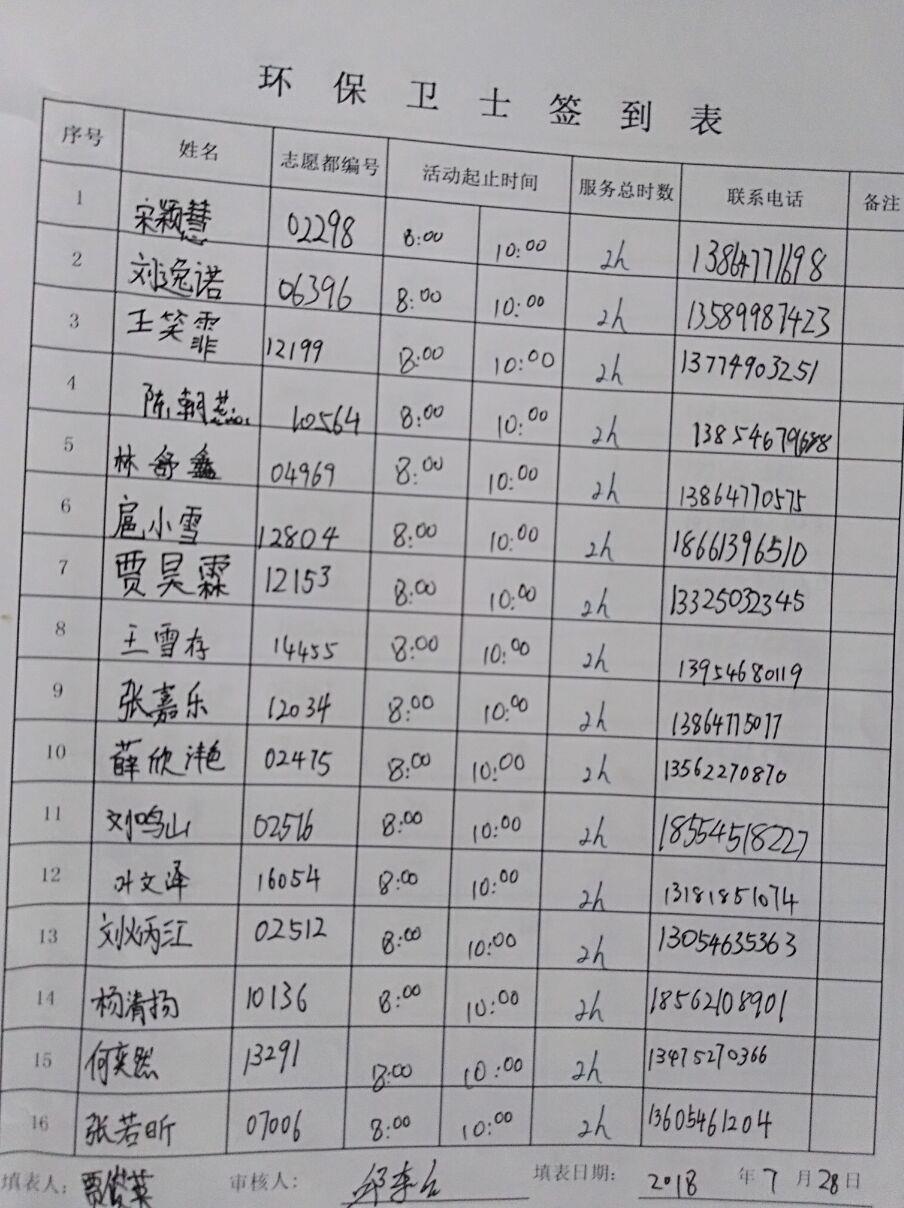 环保卫士签到表
序号 姓名 志愿都编号 活动起止时间 服务总时数 联系电话 备注
1 宋颖慧 02298 8:00 10:00 2h 13864771698
2 刘逸诺 06396 8:00 10:00 2h 13589987423
3 王笑霏 12199 8:00 10:00 2h 13774903251
4 陈朝 10564 8:00 10:00 2h
5 林舒鑫 04969 8:00 10:00 2h 13864770575
6 扈小雪 12804 8:00 10:00 2h 18661396510
7 贾昊霖 12153 8:00 10:00 2h 13325032345
8 王雪存 14455 8:00 10:00 2h 13954680119
9 张嘉乐 12034 8:00 10:00 2h 13864775077
10 薛欣滟 02475 8:00 10:00 2h 13562270870
11 刘鸣山 02516 8:00 10:00 2h 18554518227
12 叶文泽 16054 8:00 10:00 2h 13181851074
13 刘炳江 02512 8:00 10:00 2h 13054635363
14 杨清扬 10136 8:00 10:00 2h 18562108901
15 何奕然 13291 8:00 10:00 2h 13475270366
16 张若昕 07006 8:00 10:00 2h 13605461204
填表人: 贾俊英 审核人: 填表日期: 2018 年 7 月 28 日